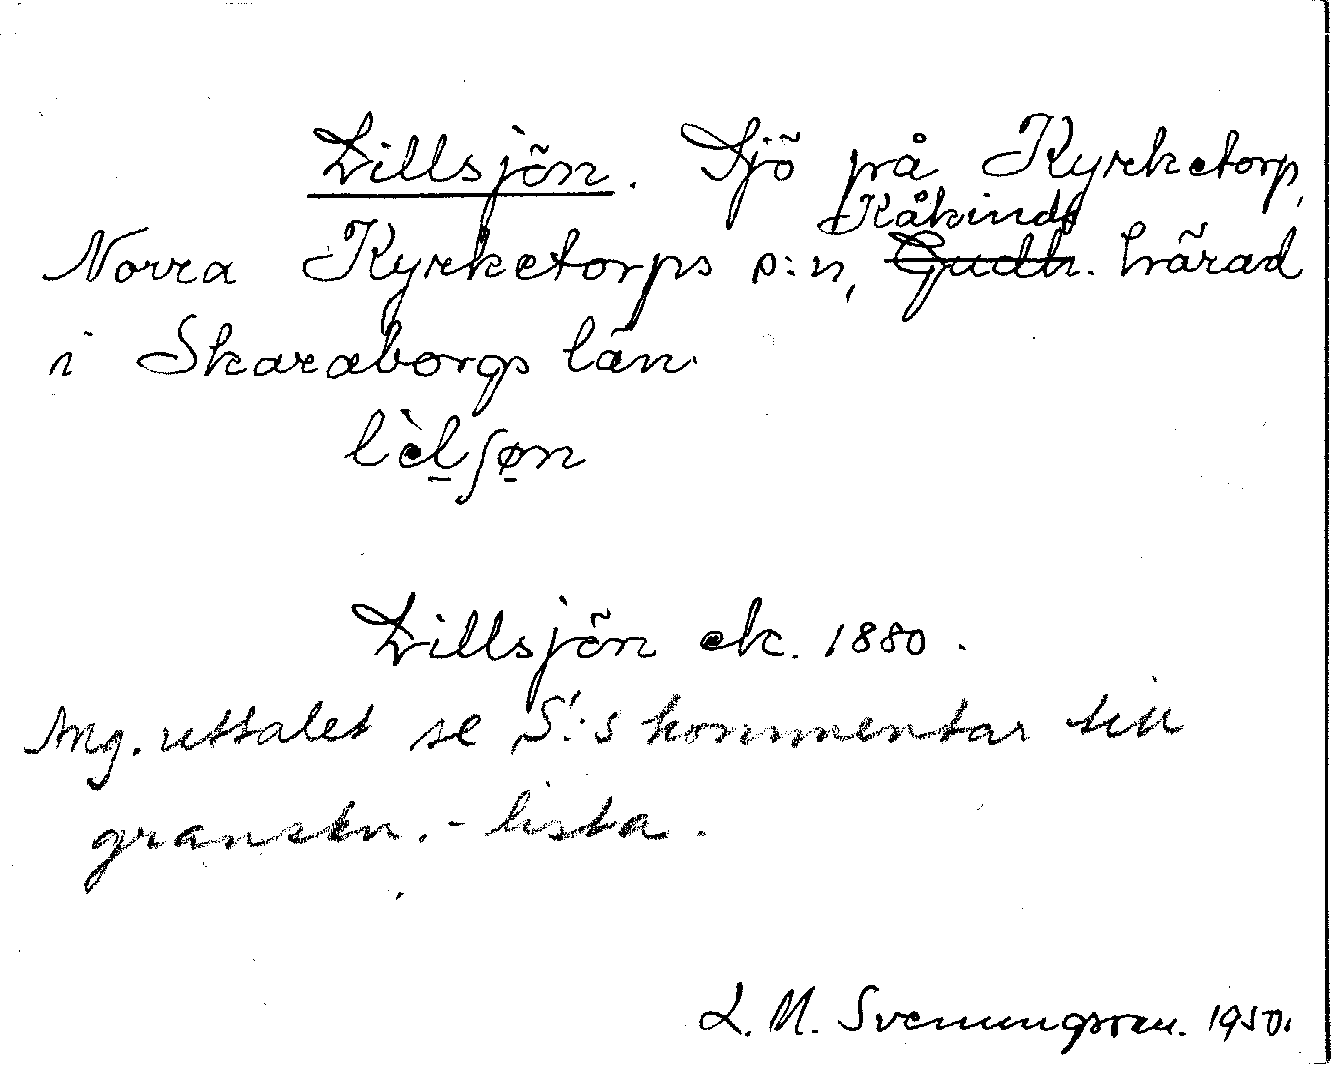 Lillsjön. Sjö på Kyrketorp,
Kåkinds
Norra Kyrketorps s:n, Gudh. härad
i Skaraborgs län.
lèl̠ʃø̠n
Lillsjön ek. 1880.
Ang. uttalet se S:s kommentar till
granskn.-lista.
L. M. Svenungsson. 1950.